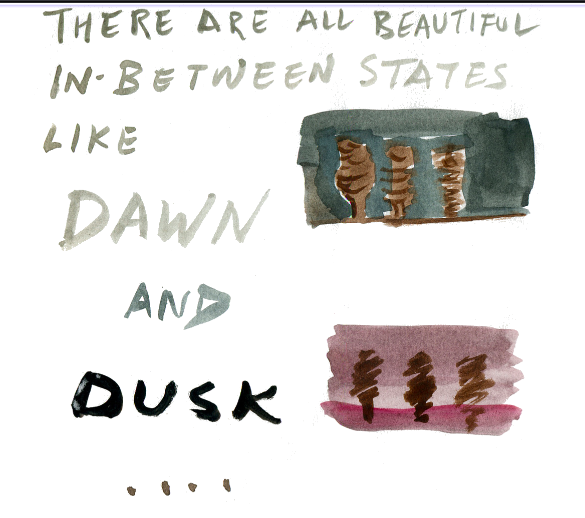 THERE ARE ALL BEAUTIFUL
IN-BETWEEN STATES
LIKE
DAWN
AND
DUSK
....